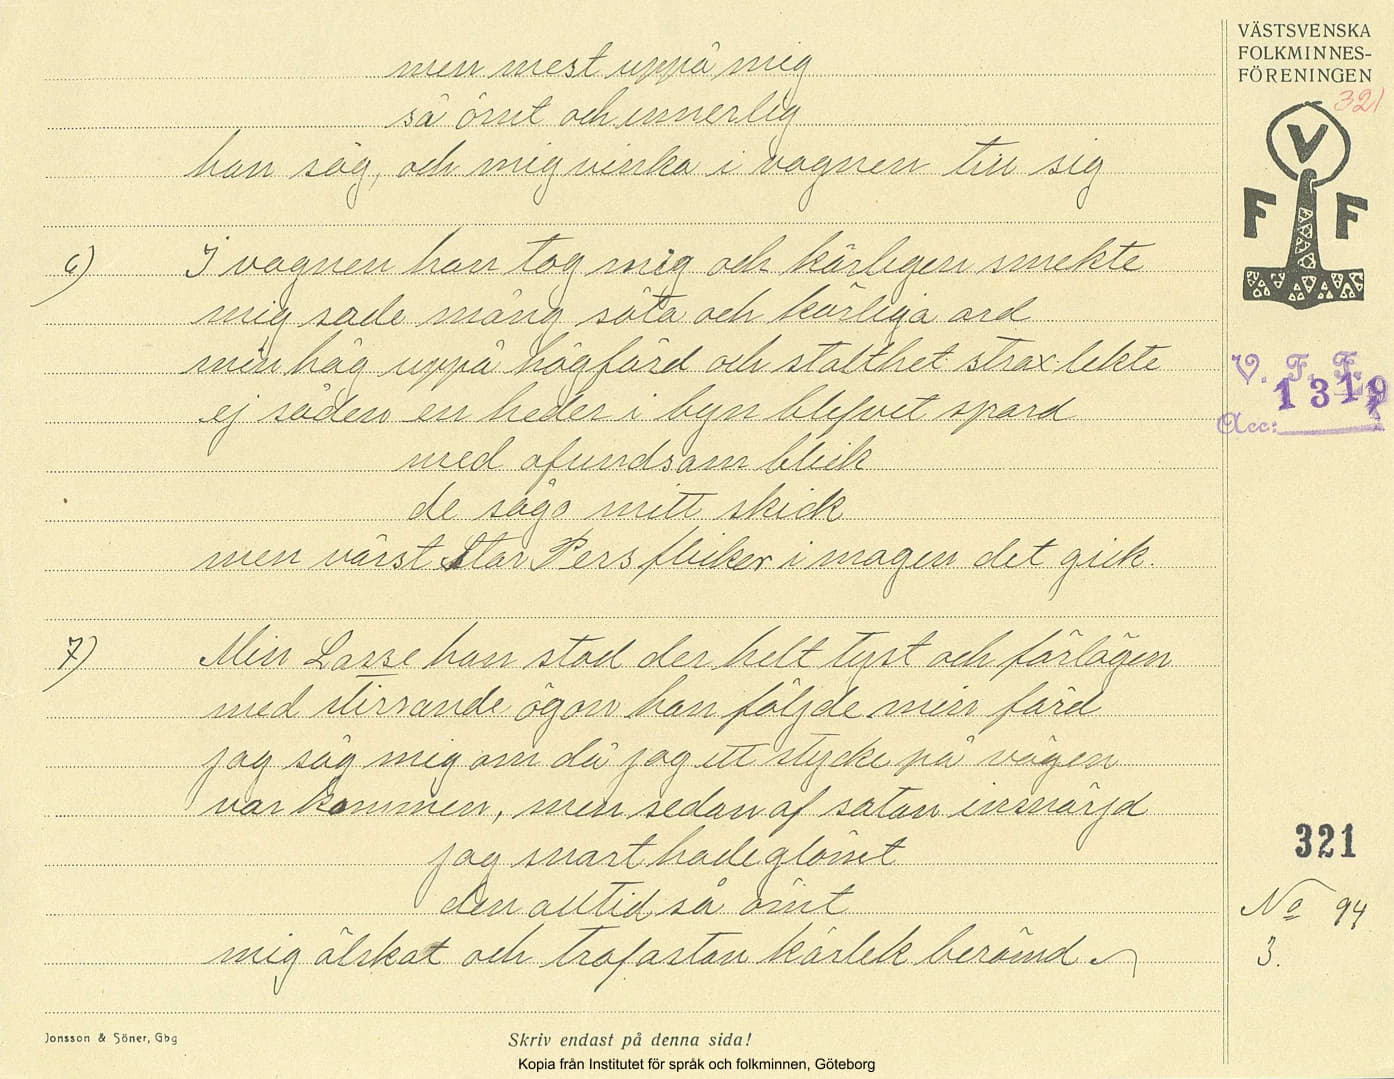 men mest uppå mig
så ömt och innerlig
han såg, och mig vinka i vagnen till sig
6) I vagnen han tog mig och kärligen smekte
mig sade mång söta och kärliga ord
min håg uppå högfärd och stolthet strax lekte
ej såden en heder i byn blifvit spord
med afundsam blick
de sågo mitt skick
men värst Star Pers flicker i magen det gick.
7) Min Lasse han stod der helt tyst och förlägen
med stirrande ögon han följde min färd
jag såg mig om då jag ett stycke på vägen
var kommen, men sedan af satan insnärjd
jag snart hade glömt
den alltid så ömt
mig älskat och trofastan kärlek berömd
VÄSTSVENSKA
FOLKMINNES-
FÖRENINGEN
321
V
F F
V. F. F.
1319
Acc:
321
No 94
3.
Jonsson & Söner, Gbg
Skriv endast på denna sida!
Kopia från Institutet för språk och folkminnen, Göteborg